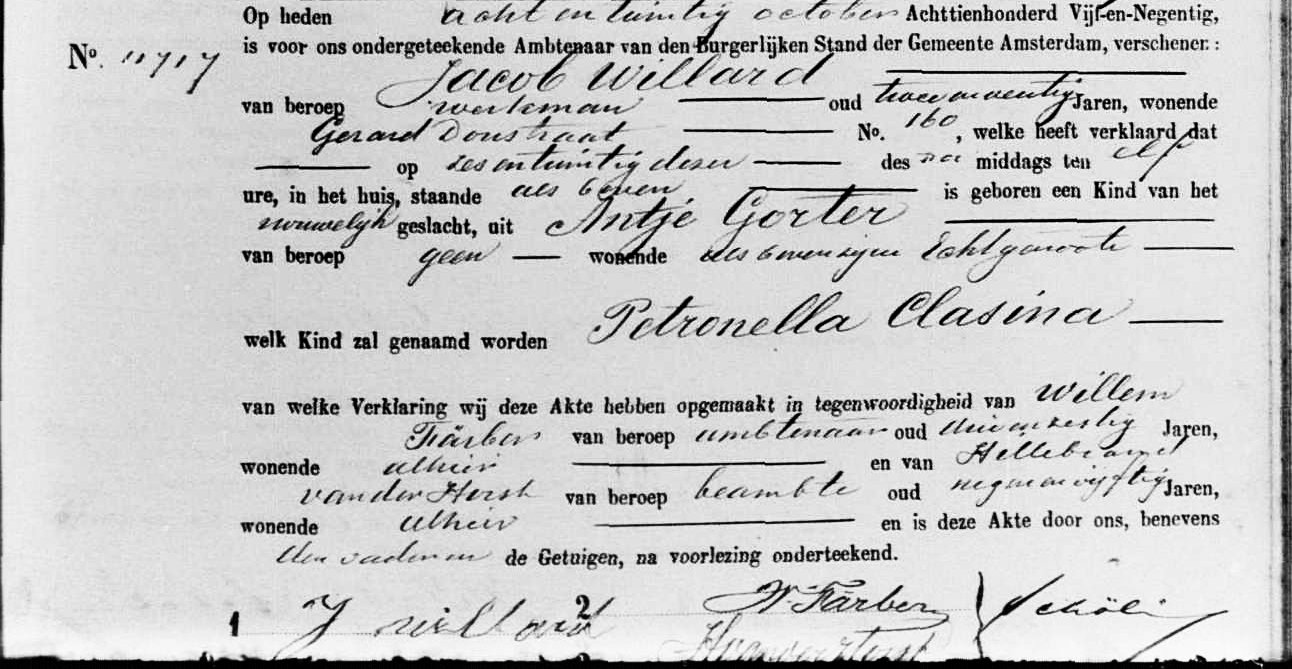 Op heden acht en twintig october Achttienhonderd Vijf-en-Negentig,
No. 11717 is voor ons ondergeteekende Ambtenaar van den Burgerlijken Stand der Gemeente Amsterdam, verschenen:
Jacob Willard
van beroep werkman oud twee en veertig Jaren, wonende
Gerard Doustraat No. 160, welke heeft verklaard dat
op zes en twintig dezer des na middags ten elf
ure, in het huis, staande als boven is geboren een Kind van het
vrouwelijk geslacht, uit Antje Gorter
van beroep geen wonende als boven zijne Echtgenoote
welk Kind zal genaamd worden Petronella Clasina
van welke Verklaring wij deze Akte hebben opgemaakt in tegenwoordigheid van Willem
Färber van beroep ambtenaar oud drie en zestig Jaren,
wonende alhier en van Hillebrand
van der Horst van beroep beambte oud negen en vijftig Jaren,
wonende alhier en is deze Akte door ons, benevens
den vader en de Getuigen, na voorlezing onderteekend.
1 J Willard 2 W. Färber